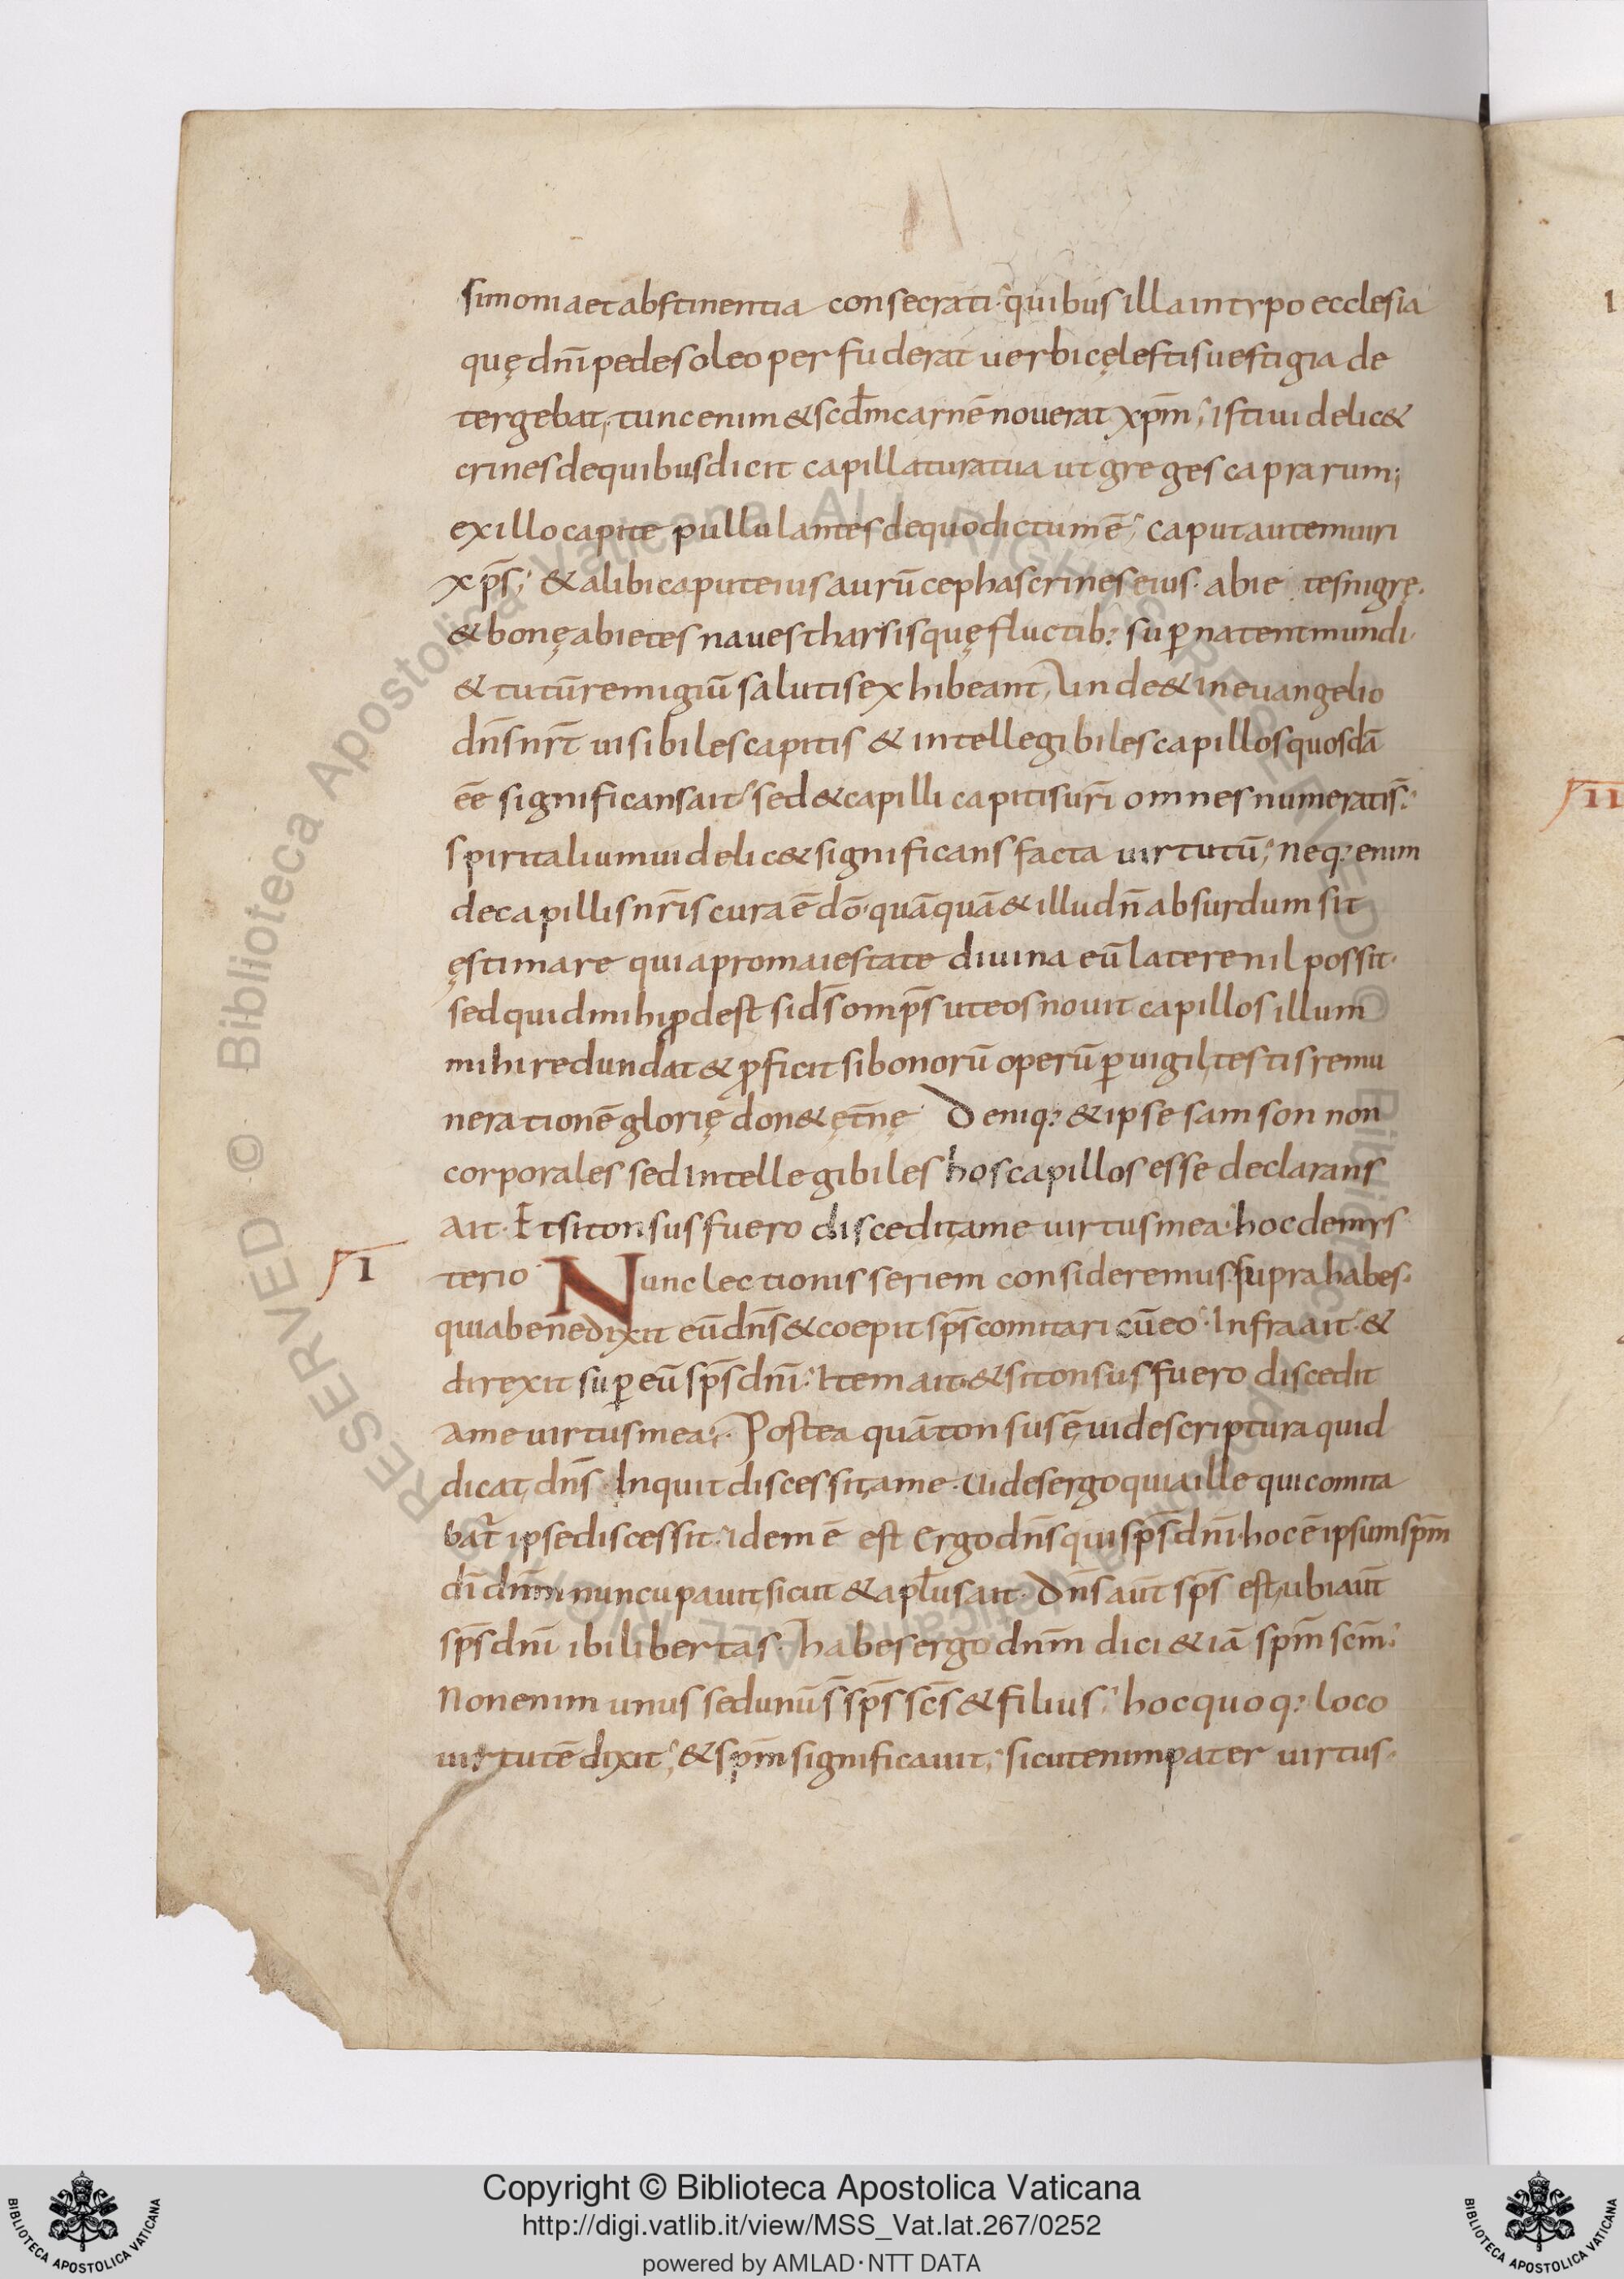 simonia et abstinentia consecrati quibus illa in typo ecclesia
quę dn̄i pedes oleo perfuderat uerbi cęlestis uestigia de
tergebat; tunc enim & scd̄m carnē nouerat xp̄m; isti uidelic&
crines de quibus dicit capillatura tua ut greges caprarum;
ex illo capite pullulantes de quo dictum ē; caput autem uiri
xp̄s; & alibi caput eius aurū cephas crines eius. abie tes nigrę.
& bonę abietes naues tharsis quę fluctib: suꝑnatent mundi.
& tutū remigiū salutis exhibeant, Unde & in euangelio
dn̄s nr̄t uisibiles capitis & intellegibiles capillos quosdā
eē significans ait; sed & capilli capitis ur̄i omnes numerati s̄:
spiritalium uidelic& significans facta uirtutū; neq: enim
de capillis nr̄is cura ē dō. quāquā & illud n̄ absurdum sit
ęstimare quia pro maiestate diuina eū latere nil possit.
sed quid mihi ꝓdest si ds̄ omp̄s ut eos nouit capillos illum
mihi redundat & ꝓficit si bonorū operū ꝑuigil testis remu
nerationē glorię don& ęt̄nę Deniq: & ipse samson non
corporales sed intellegibiles hos capillos esse declarans
ait. Et si tonsus fuero discedit, a me uirtus mea. hoc de mys
VI terio Nunc lectionis seriem consideremus. supra habes.
quia benedixit eū dn̄s & coepit sp̄s comitari cū eo. Infra ait. &
direxit suꝑ eū sp̄s dn̄i. Item ait. & si tonsus fuero discedit
a me uirtus mea;. Postea quā tonsus ē, uide scriptura quid
dicat, dn̄s. Inquit discessit, a me. Uides ergo quia ille qui comita
bat̄ ipse discessit. idem ē est Ergo dn̄s qui sp̄s dn̄i. hoc ē ipsum sp̄m
dī dn̄m nuncupauit, sicut & apl̄us ait. Dn̄s aūt sp̄s est, ubi aūt
sp̄s dn̄i ibi libertas. habes ergo dn̄m dici & iā sp̄m sc̄m.
Non enim unus sed unū s̄ sp̄s sc̄s & filius; hoc quoq: loco
uirtutē dixit; & sp̄m significauit; sicut enim pater uirtus.
Copyright © Biblioteca Apostolica Vaticana
http://digi.vatlib.it/view/MSS_Vat.lat.267/0252
powered by AMLAD · NTT DATA